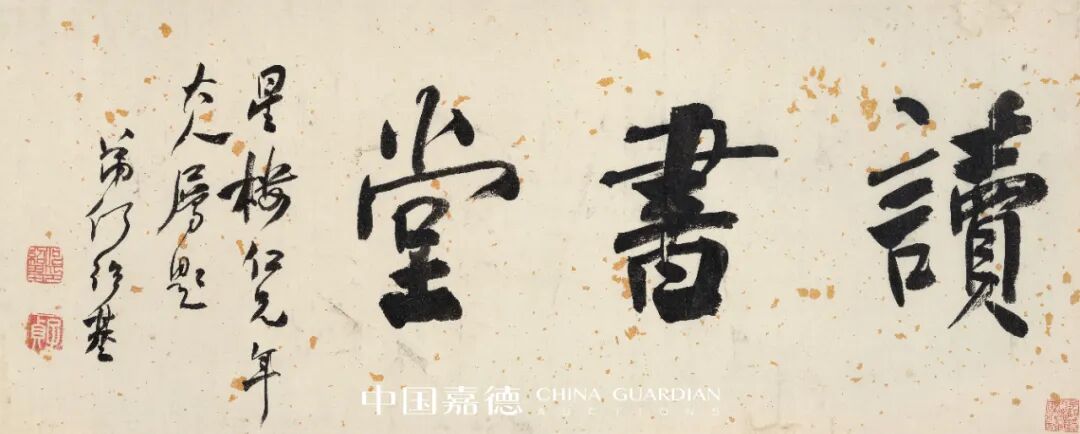 讀書堂
星樓仁兄年
大人屬題
弟何紹基
中国嘉德 CHINA GUARDIAN
AUCTIONS